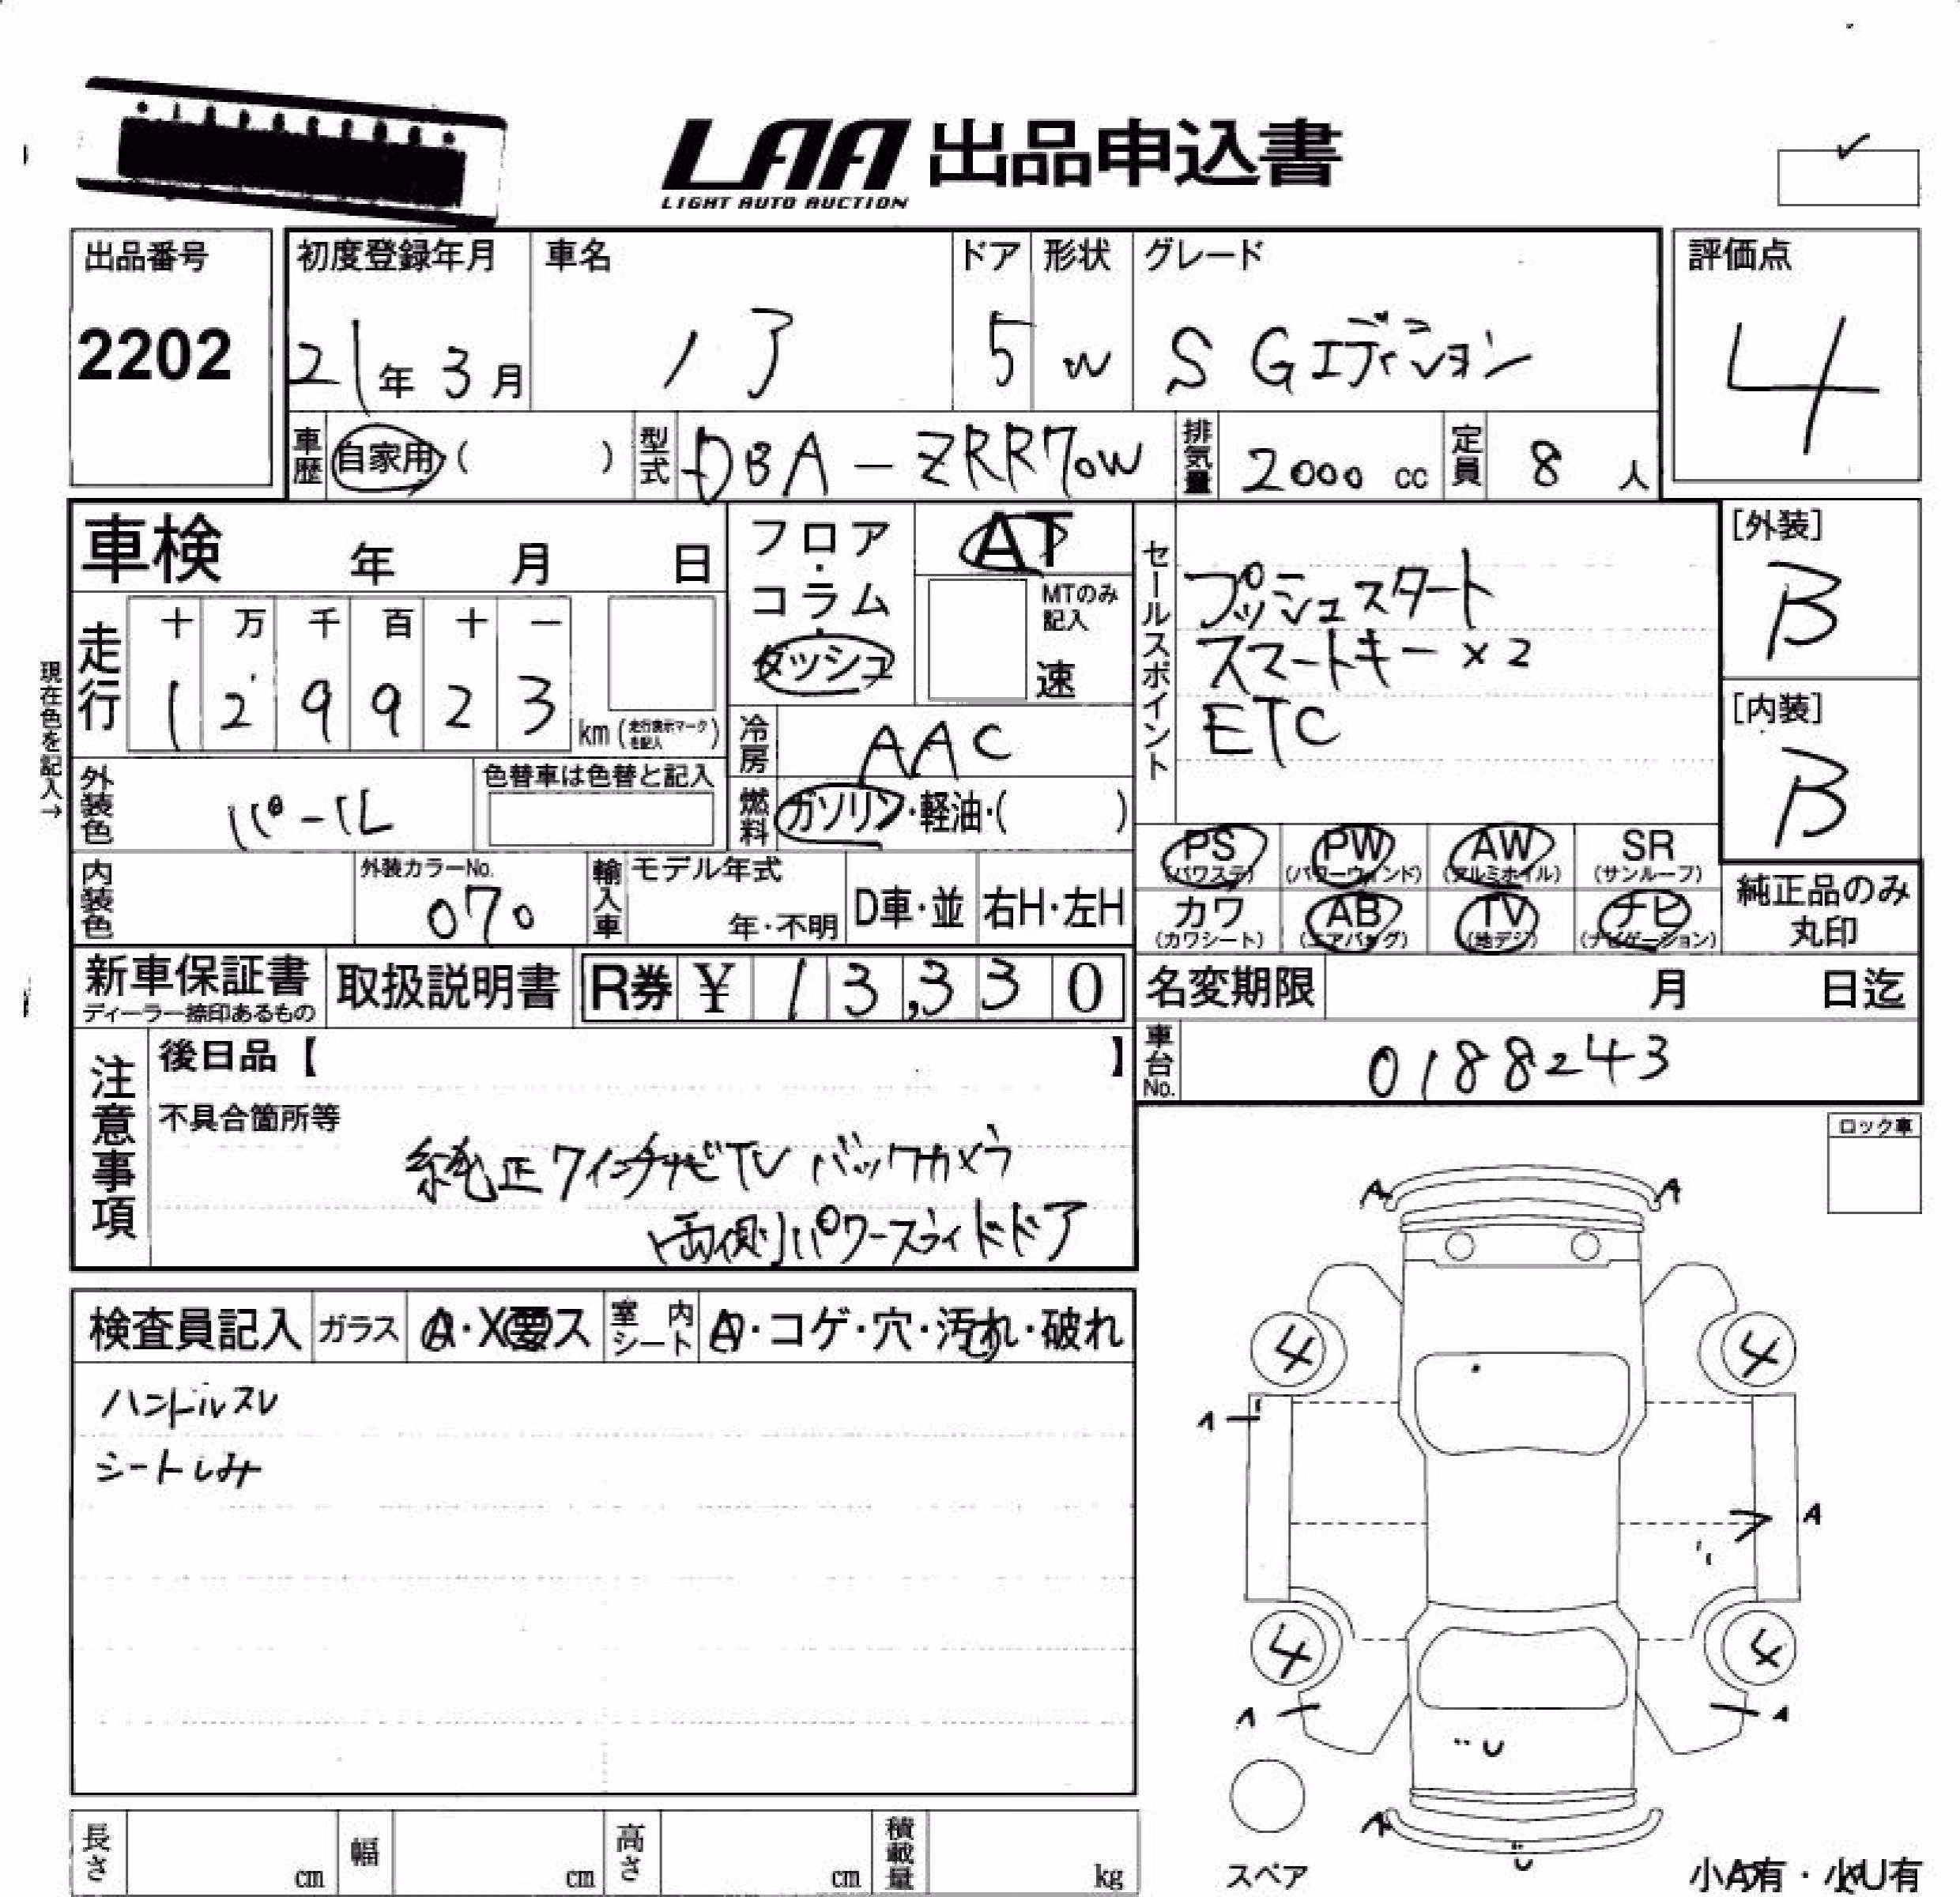 LAA 出品申込書
LIGHT AUTO AUCTION
出品番号
2202
初度登録年月
21年 3月
車名
ノア
ドア
5
形状
W
グレード
S Gエディション
評価点
4
車歴
自家用 ( )
型式
DBA-ZRR70W
排気量
2000 cc
定員
8 人
車検 年 月 日
フロア・コラム・ダッシュ
AT
MTのみ記入
速
走行
十 万 千 百 十 一
1 2 9 9 2 3 km (走行表示マークを記入)
現在色を記入→
冷房
AAC
燃料
ガソリン・軽油・( )
外装色
パール
色替車は色替と記入
内装色
外装カラーNo.
070
輸入車
モデル年式
年・不明
D車・並
右H・左H
セールスポイント
プッシュスタート
スマートキー×2
ETC
[外装]
B
[内装]
B
PS (パワステ)
PW (パワーウィンド)
AW (アルミホイル)
SR (サンルーフ)
カワ (カワシート)
AB (エアバッグ)
TV (地デジ)
ナビ (ナビゲーション)
純正品のみ
丸印
新車保証書
ディーラー捺印あるもの
取扱説明書
R券 ¥ 13,330
名変期限 月 日迄
車台No.
0188243
注意事項
後日品【 】
不具合箇所等
純正7インチナビTV バックカメラ
両側パワースライドドア
ロック車
検査員記入
ガラス
A・X要ス
室内シート
A・コゲ・穴・汚れ・破れ
ハンドルスレ
シートしみ
A A
4 4
A
A
4 4
A A
U
A
U
スペア
小A有・小U有
長さ cm
幅 cm
高さ cm
積載量 kg